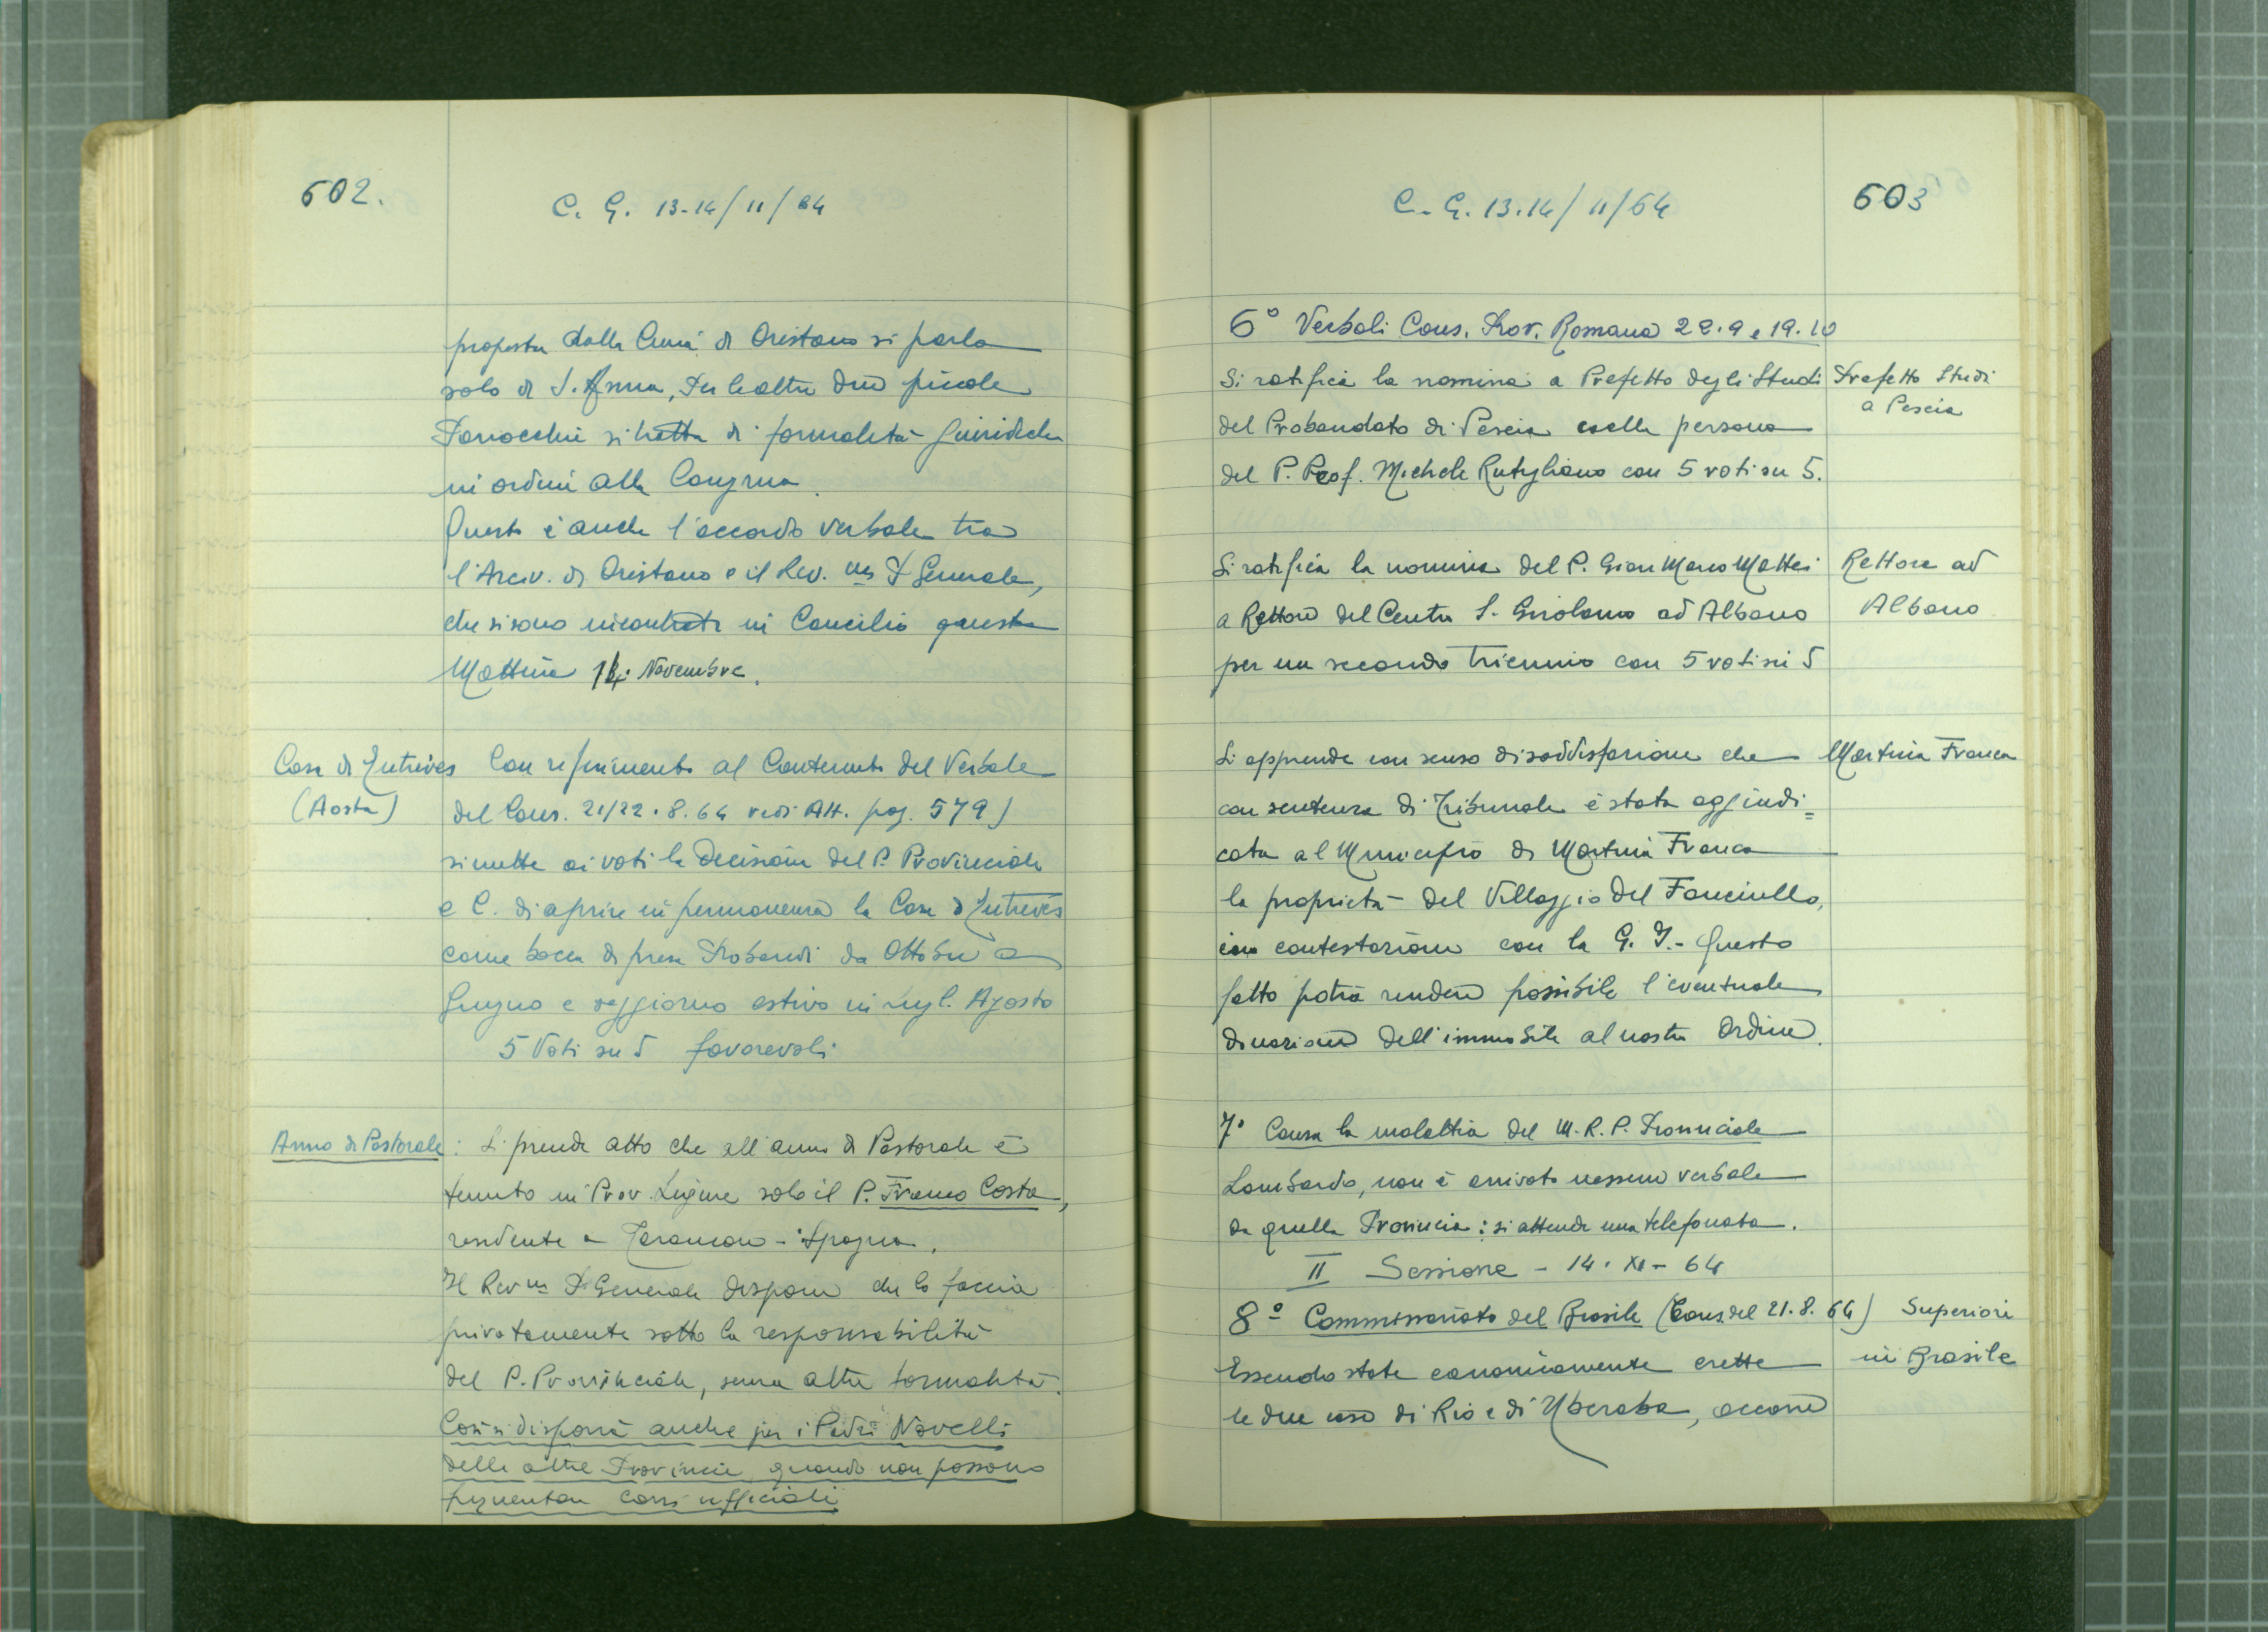 602.
C. G. 13-14/11/64
proposta dalla Curia di Oristano si parla
solo di S. Anna, Per le altre due piccole
Parrocchie si tratta di formalità giuridiche
in ordine alla Congrua.
Questo è anche l'accordo verbale tra
l'Arciv. di Oristano e il Rev.mo P. Generale,
che si sono incontrati in Concilio questa
Mattina 14. Novembre.
Casa di Entrèves
(Aosta)
Con riferimento al Contenuto del Verbale
del Cons. 21/22.8.64 vedi Att. pag. 579)
si mette ai voti la Decisione del P. Provinciale
e C. di aprire in permanenza la Casa d'Entrevès
come bocca di presa Probandi da Ottobre a
Giugno e soggiorno estivo in Lugl. Agosto
5 Voti su 5 favorevoli
Anno di Pastorale: Si prende atto che all'anno di Pastorale è
tenuto in Prov. Ligure solo il P. Franco Costa,
residente a Tarancon - Spagna.
Il Rev.mo P. Generale dispone che lo faccia
privatamente sotto la responsabilità
del P. Provinciale, senza altre formalità.
Così si disporrà anche per i Padri Novelli
delle altre Provincie, quando non possono
frequentare Corsi ufficiali
C. G. 13.14/11/64
603
6° Verbali Cons. Prov. Romana 22.9 e 19.10
Si ratifica la nomina a Prefetto degli Studi
del Probandato di Pescia nella persona
del P. Prof. Michele Rutigliano con 5 voti su 5.
Prefetto Studi
a Pescia
Si ratifica la nomina del P. Gian Marco Mattei
a Rettore del Centro S. Girolamo ad Albano
per un secondo triennio con 5 voti su 5
Rettore ad
Albano
Si apprende con senso di soddisfazione che
con sentenza di Tribunale è stata aggiudi=
cata al Municipio di Martina Franca
la proprietà del Villaggio del Fanciullo,
in contestazione con la G. I. - Questo
fatto potrà rendere possibile l'eventuale
donazione dell'immobile al nostro Ordine.
Martina Franca
7° Causa la malattia del M. R. P. Provinciale
Lombardo, non è arrivato nessun verbale
da quella Provincia: si attende una telefonata.
II Sessione - 14. XI - 64
8° Commissariato del Brasile (Cons. del 21.8.64)
Essendo state canonicamente erette
le due case di Rio e di Uberaba, occorre
Superiori
in Brasile